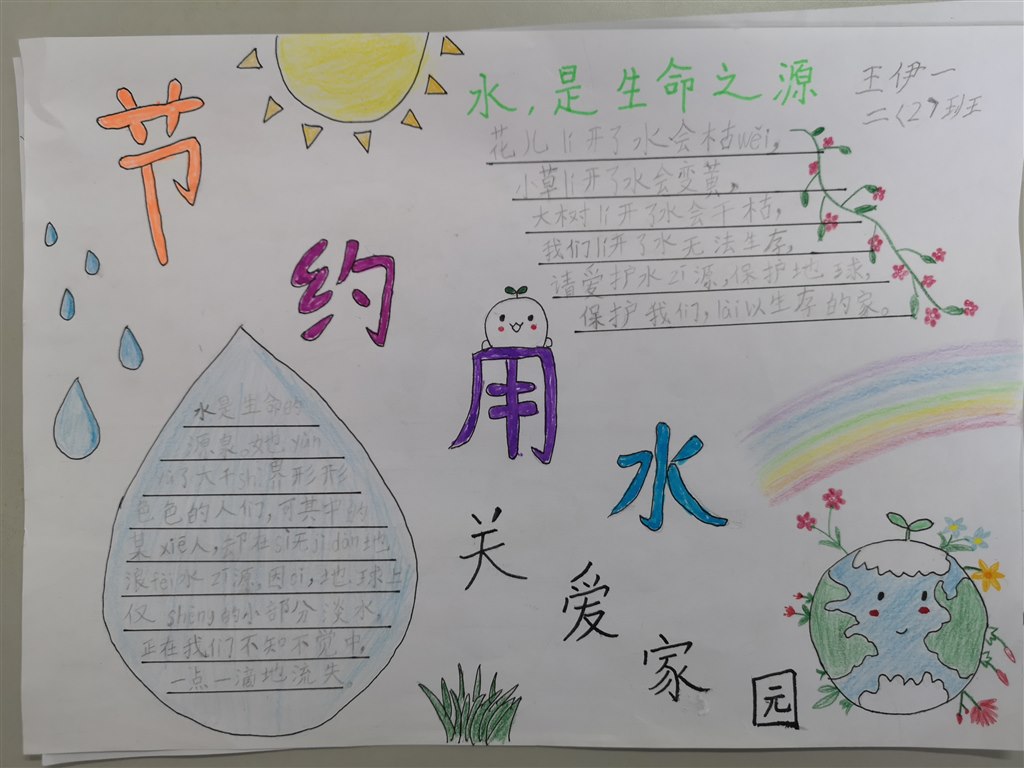 节约用水
关爱家园
水,是生命之源
王伊一
二(2)班
花儿lí开了水会枯wěi,
小草lí开了水会变黄,
大树lí开了水会干枯,
我们lí开了水无法生存,
请爱护水zī源,保护地球,
保护我们,lài以生存的家。
水是生命的
源泉。她
了大千shì界形形
色色的人们,可其中的
某xiē人,却在sì无jì dàn地
浪fèi水zī源,因 ,地球上
仅shèng的小部分淡水,
正在我们不知不觉中,
一点一滴地流失